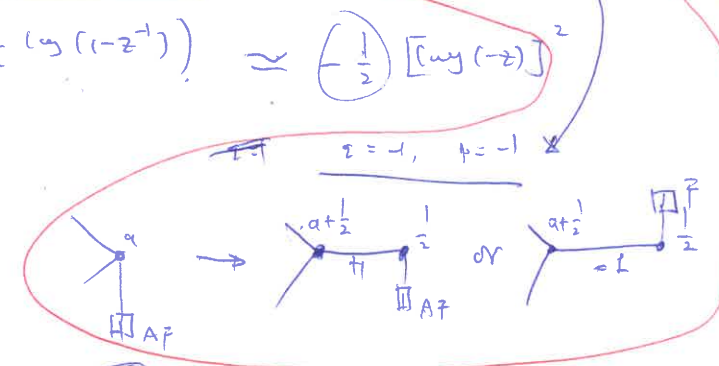 log (1-z⁻¹)) ≃ (-1/2) [log (-z)]²
q = -1, p = -1
a → a+1/2 +1 1/2 or a+1/2 -1 1/2
F
AF AF